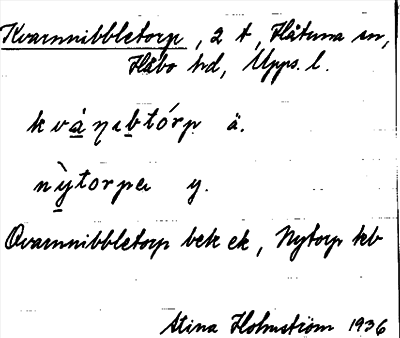 Kvarnnibbletorp, 2 t, Håtuna sn,
Håbo hd, Upps. l.
kvánıbtórp ä.
nỳtorpeı y.
Qvarnnibbletorp bek ek, Nytorp kb
Stina Holmström 1936